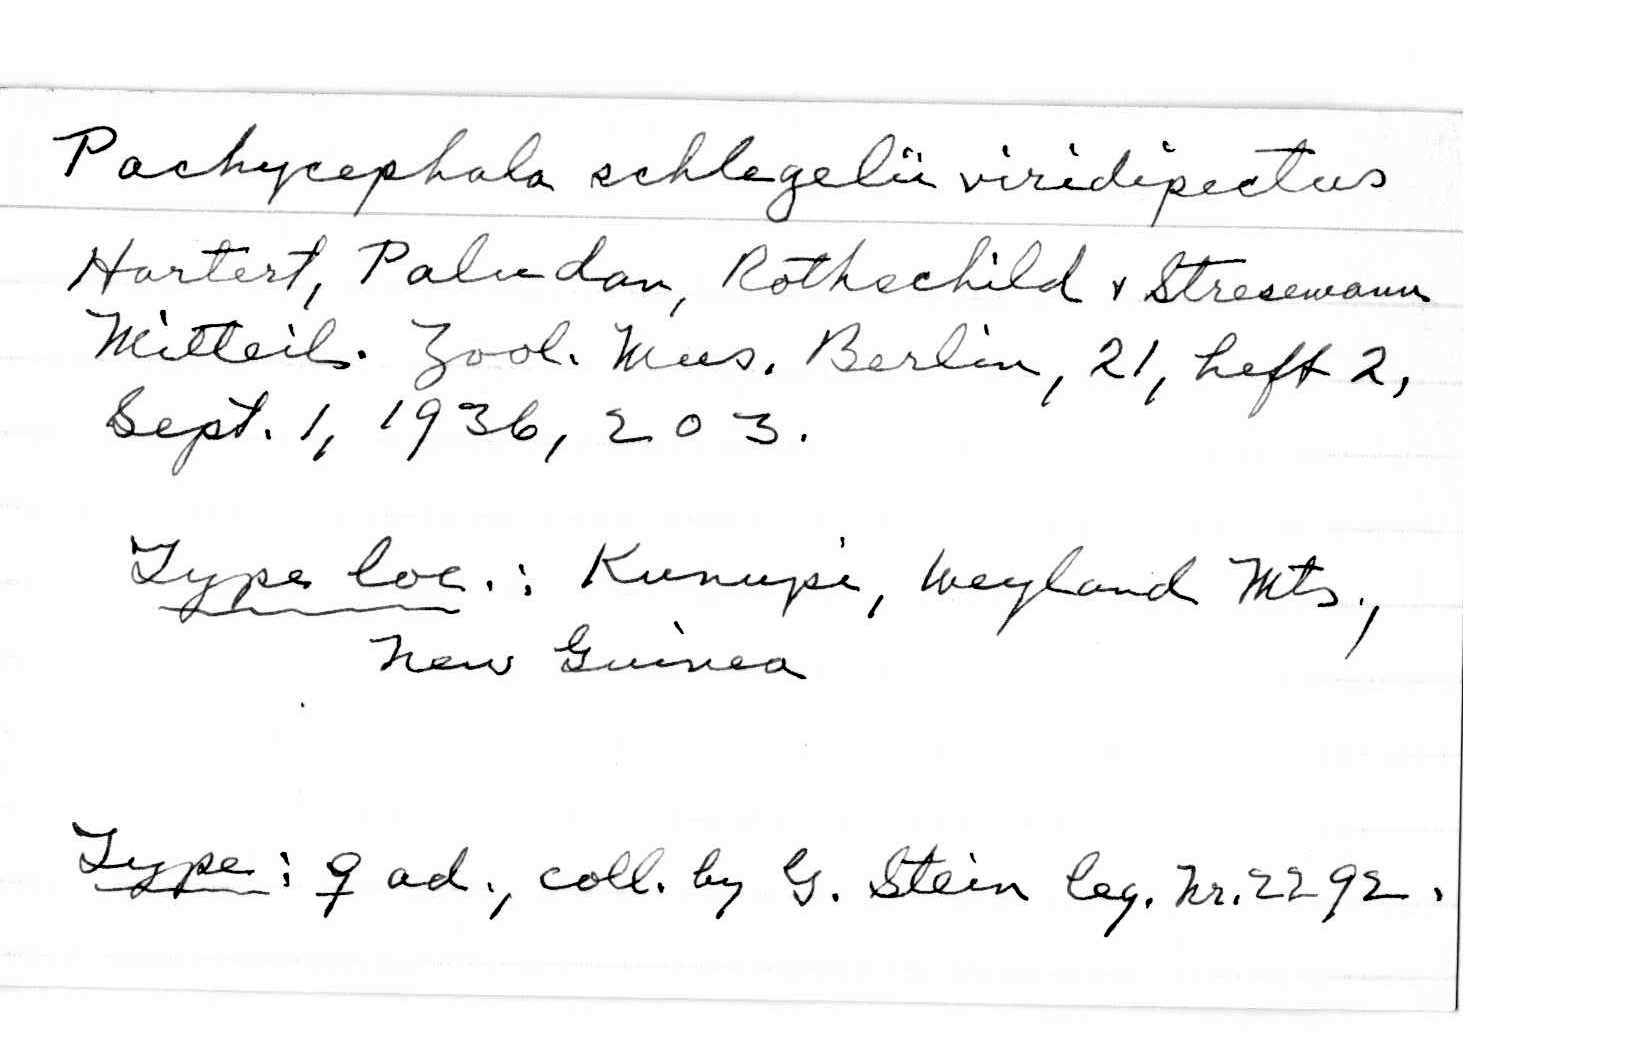 Pachycephala schlegelii viridipectus
Hartert, Paludan, Rothschild & Stresemann
Mitteil. Zool. Mus. Berlin, 21, heft 2,
Sept. 1, 1936, 203.
Type loc.: Kunupi, Weyland Mts.,
New Guinea
Type: ♀ ad., coll. by G. Stein leg. Nr. 2292.